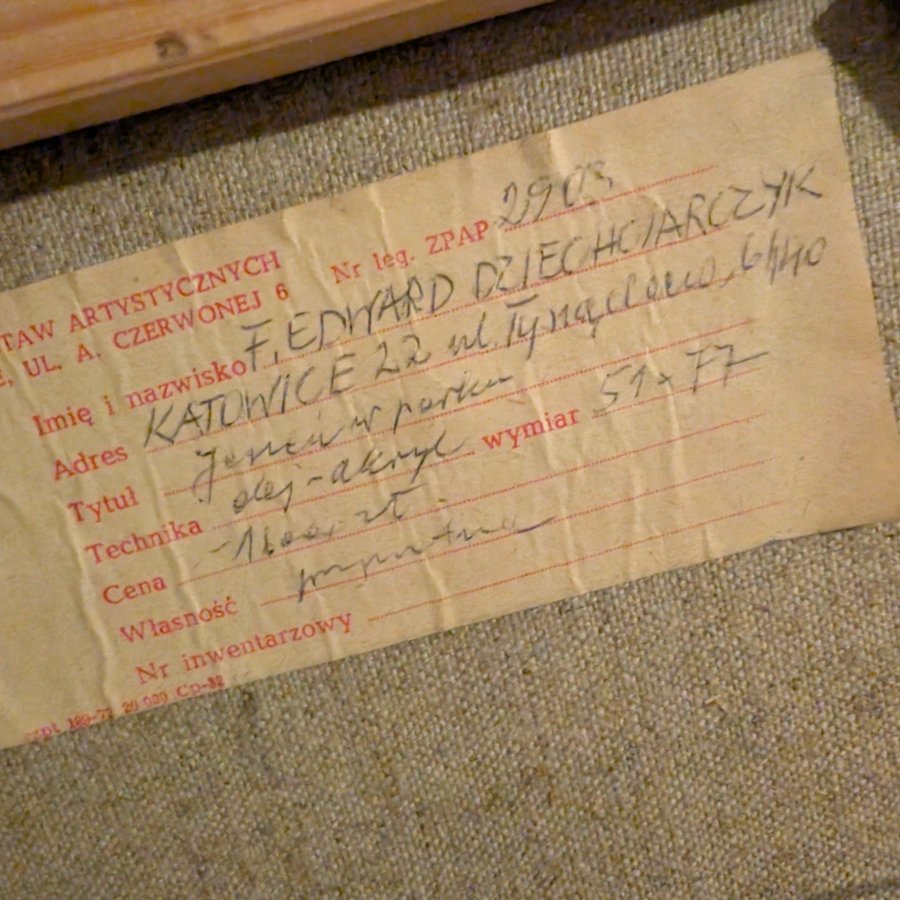 TAW ARTYSTYCZNYCH
, UL. A. CZERWONEJ 6 Nr leg. ZPAP 2903
Imię i nazwisko F. EDWARD DZIECHCIARCZYK
Adres KATOWICE 22 ul. 6/40
Tytuł Jesień w parku
Technika olej-akryl wymiar 51 x 77
Cena zł.
Własność prywatna
Nr inwentarzowy